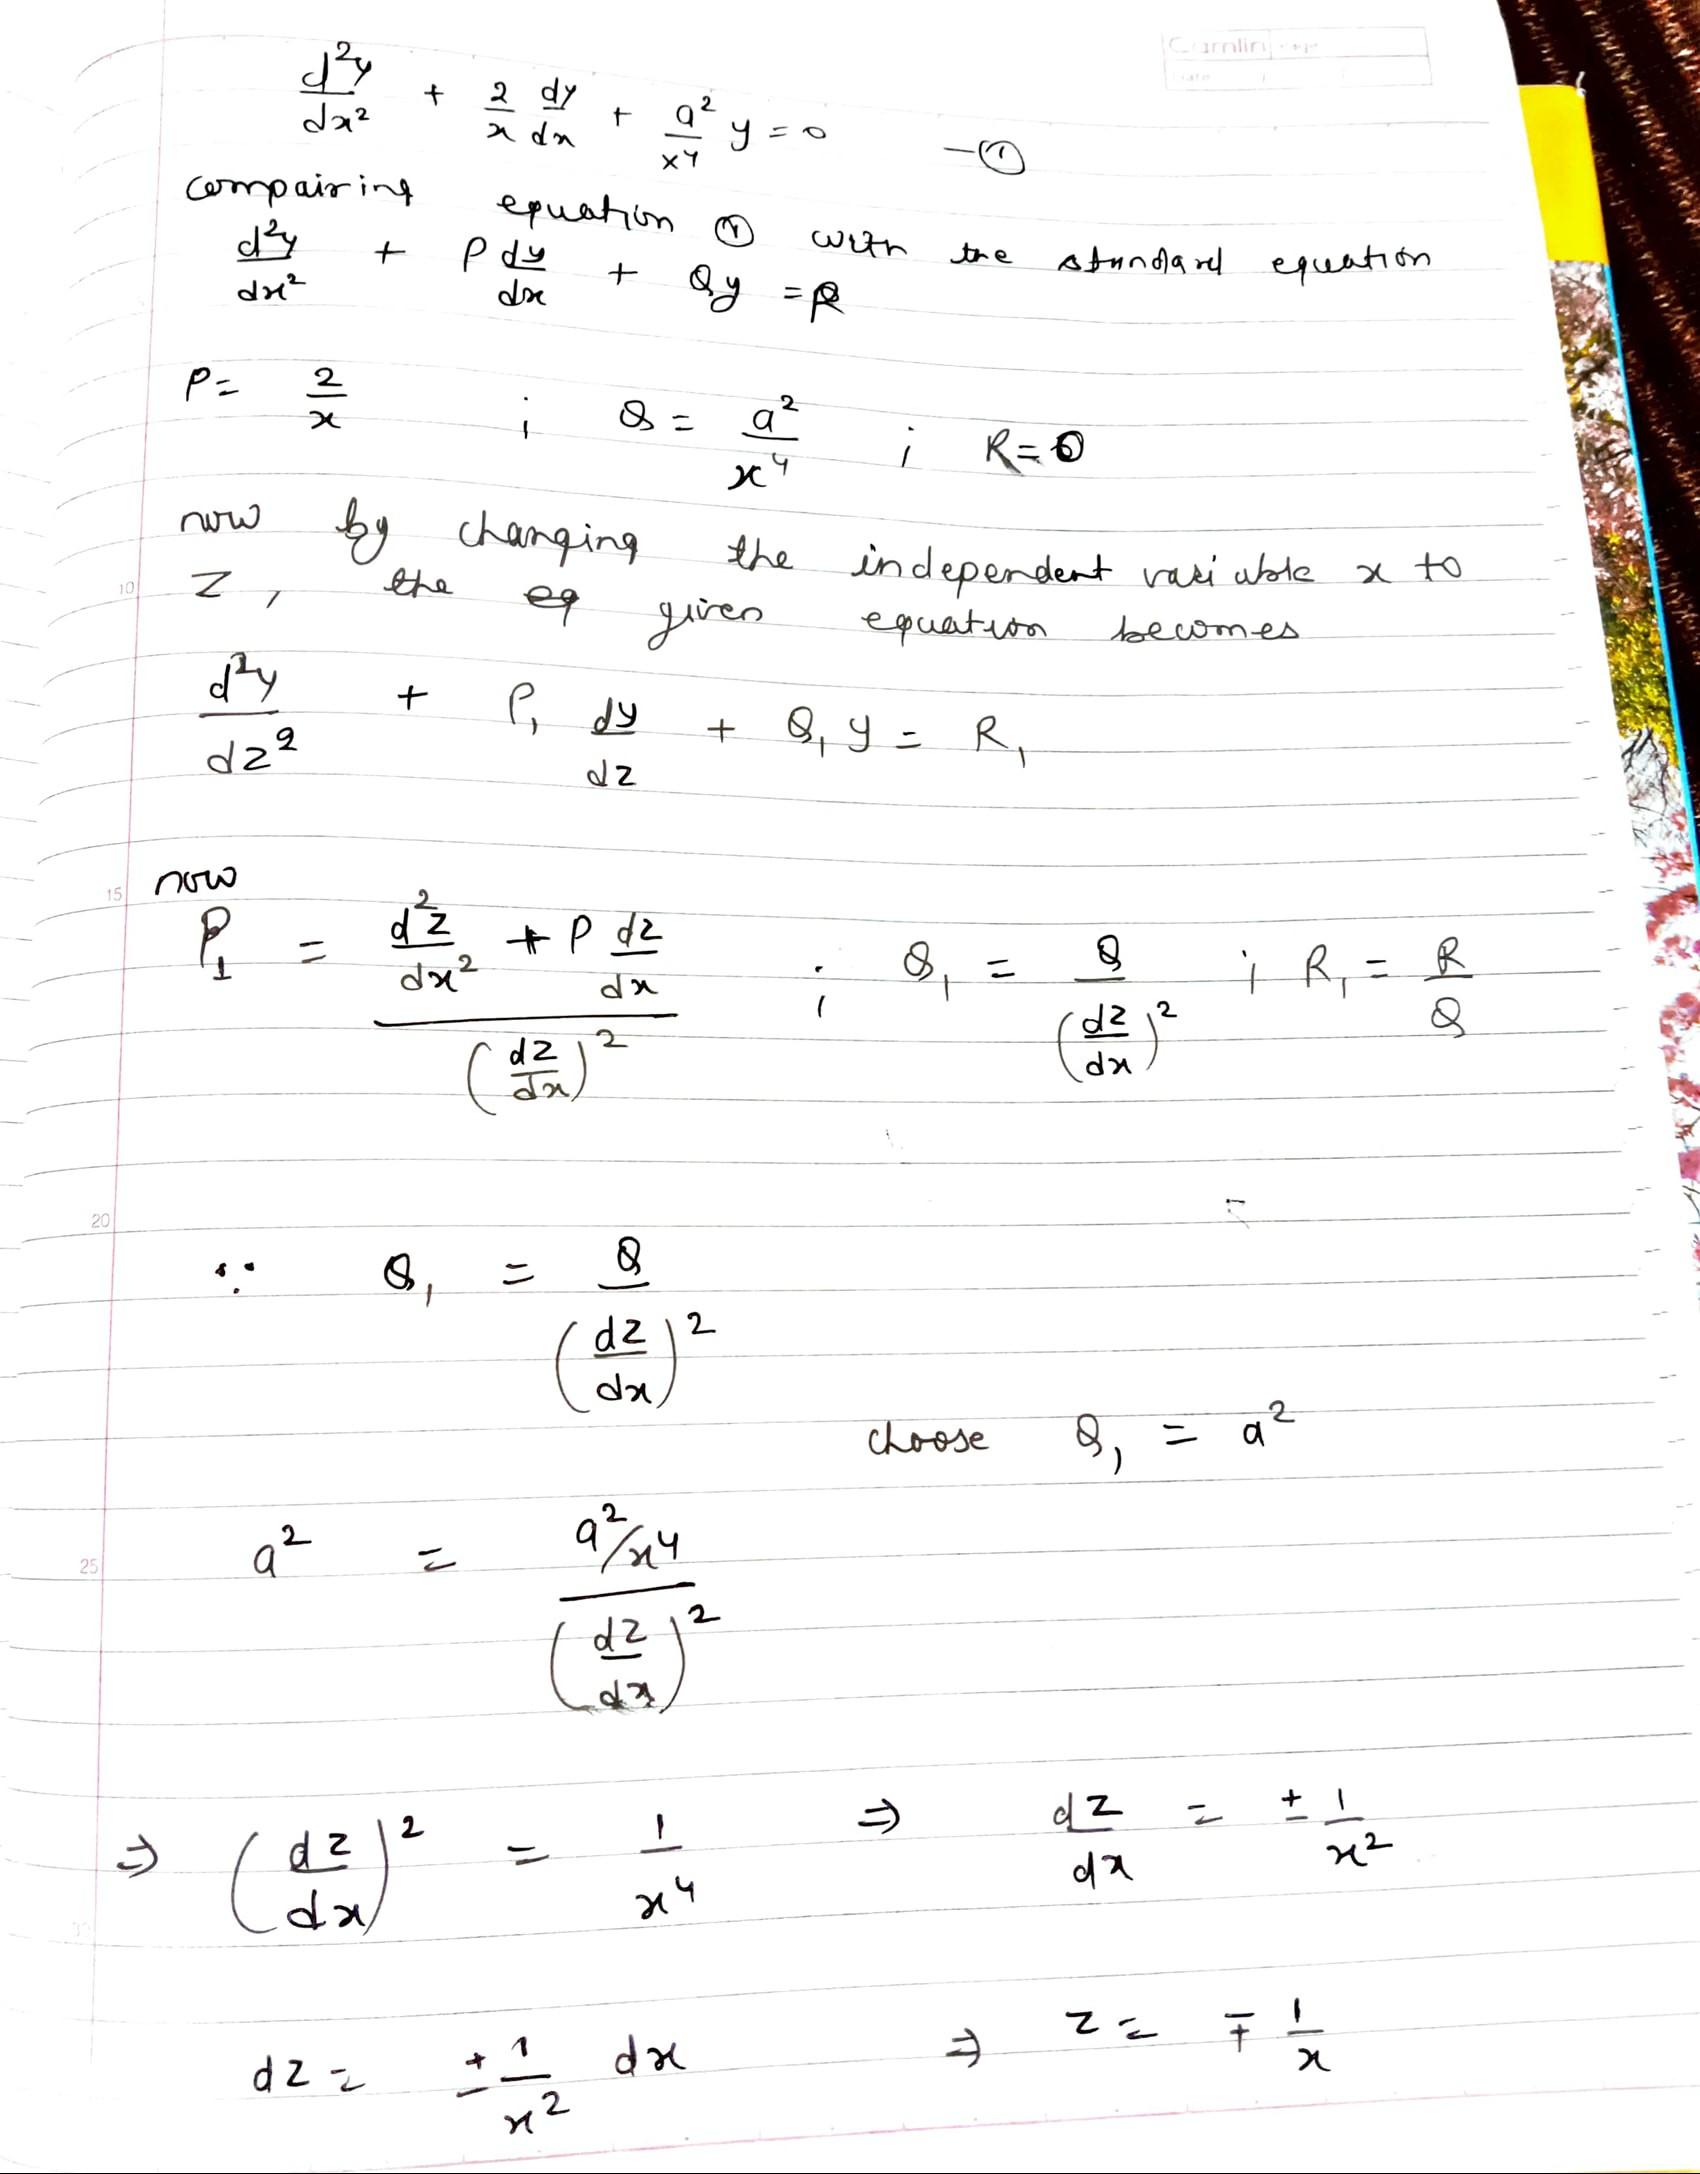 Camlin
Date
d²y/dx² + 2/x dy/dx + a²/x⁴ y = 0 —①
compairing equation ① with the standard equation
d²y/dx² + P dy/dx + Qy = R
P = 2/x ; Q = a²/x⁴ ; R = 0
now by changing the independent variable x to
10
z, the eq given equation becomes
d²y/dz² + P₁ dy/dz + Q₁y = R₁
15
now
P₁ = (d²z/dx² + P dz/dx)/(dz/dx)² ; Q₁ = Q/(dz/dx)² ; R₁ = R/Q
20
∵ Q₁ = Q/(dz/dx)²
choose Q₁ = a²
25
a² = (a²/x⁴)/(dz/dx)²
⇒ (dz/dx)² = 1/x⁴ ⇒ dz/dx = ± 1/x²
dz = ± 1/x² dx ⇒ z = ∓ 1/x